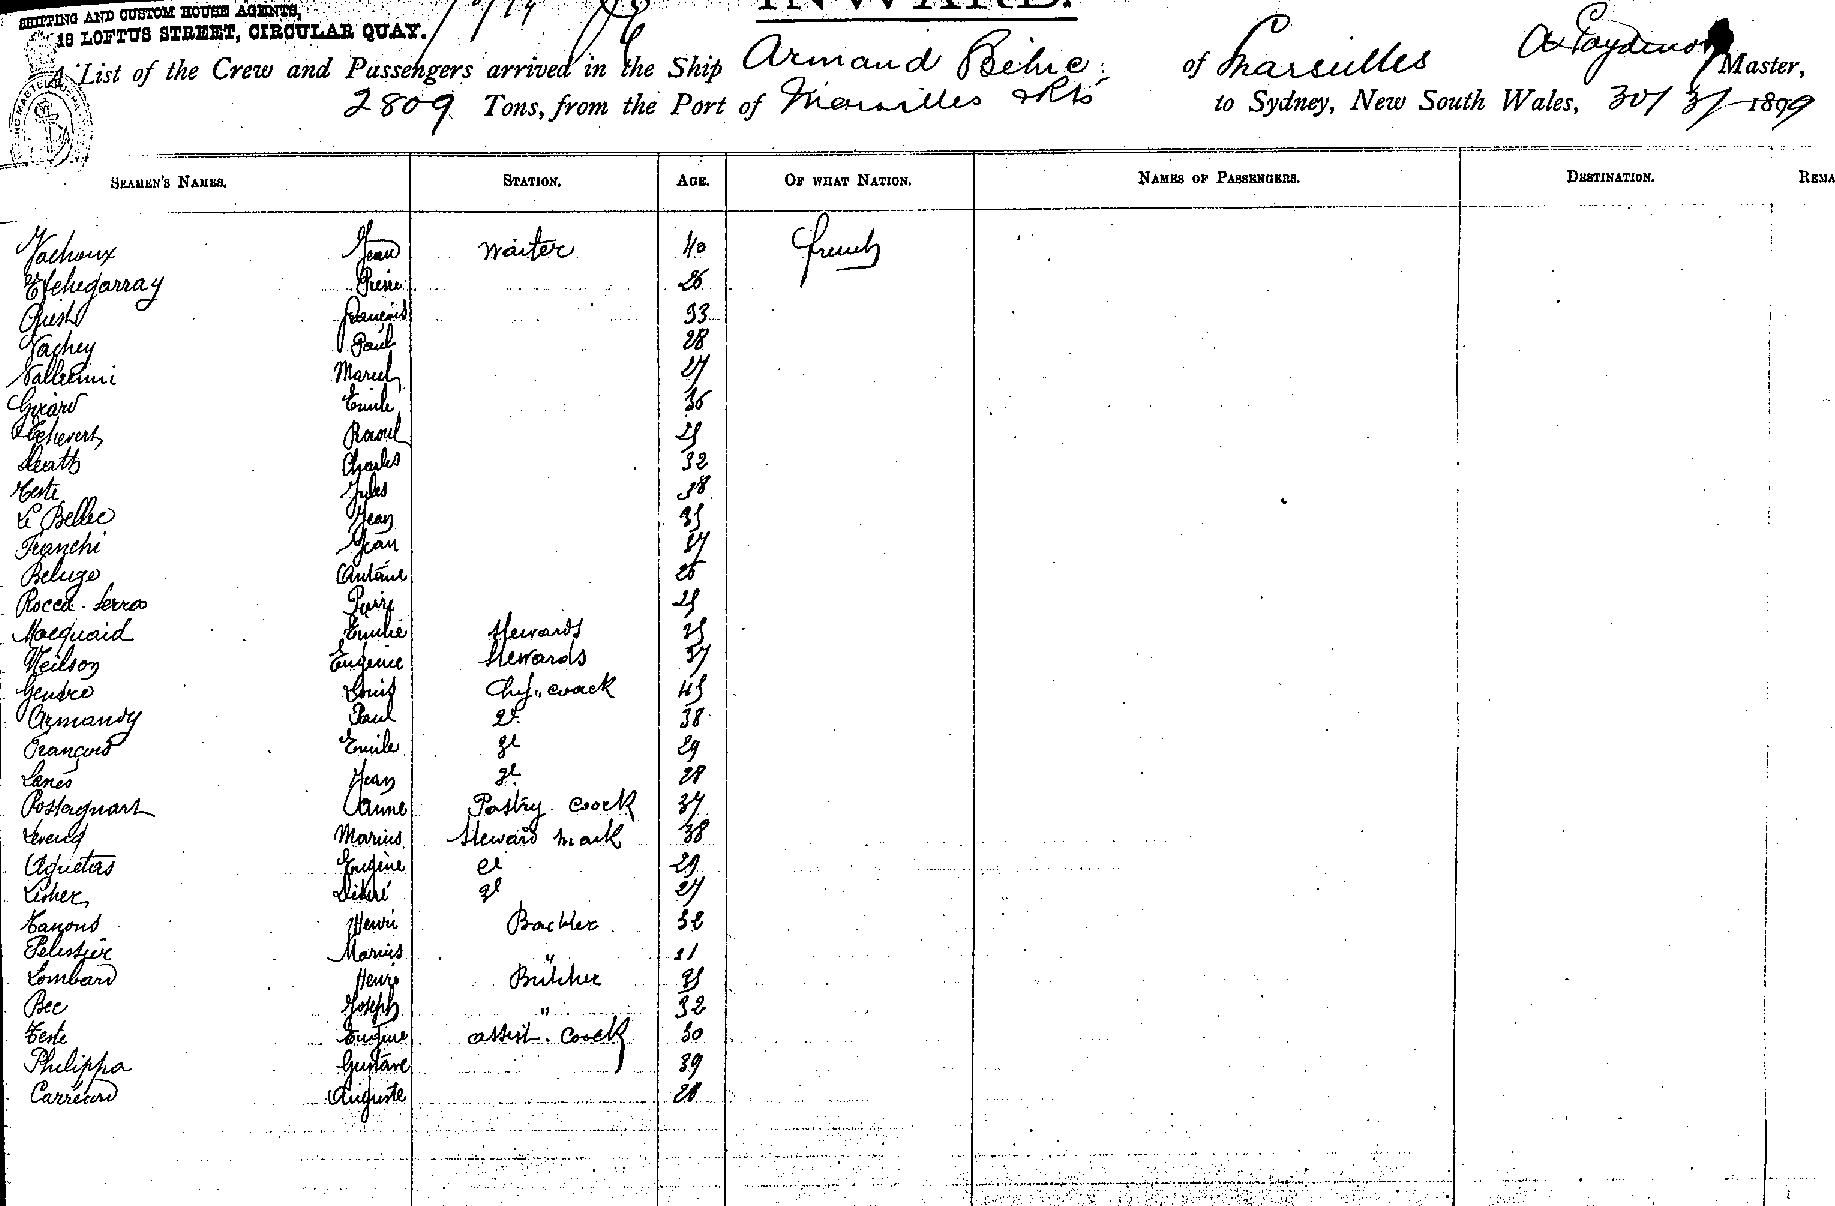 SHIPPING AND CUSTOM HOUSE AGENTS,
18 LOFTUS STREET, CIRCULAR QUAY.
INWARD.
A List of the Crew and Passengers arrived in the Ship Armand Béhic of Marseilles Master,
2809 Tons, from the Port of Marseilles to Sydney, New South Wales, 30/3/1899
SEAMEN'S NAMES. STATION. AGE. OF WHAT NATION. NAMES OF PASSENGERS. DESTINATION. REMA
Vachoux Jean Waiter 40 french
Etchegarray Pierre 26
François 33
Vachey Paul 28
Marcel 27
Girard Emile 36
Etchevert Raoul 25
Charles 32
Teste Jules 38
Le Bellec Jean 35
Franchi Jean 37
Beluge Antoine 26
Rocca Serros Pierre 25
Macquaid Emilie Stewards 25
Neilson Eugénie Stewards 37
Gendre Louis Chef cook 45
Armandy Paul 38
François Emile 29
Lanes Jean 28
Postagnart Anne Pastry coock 37
Marius Steward 38
Eugène 29
Lisher Désiré 27
Canous Henri 32
Pelissier Marius " 21
Lombard Henri Butcher 35
Bec Joseph " 32
Teste Eugène assist. coock 30
Philippa Gustave 39
Auguste 28